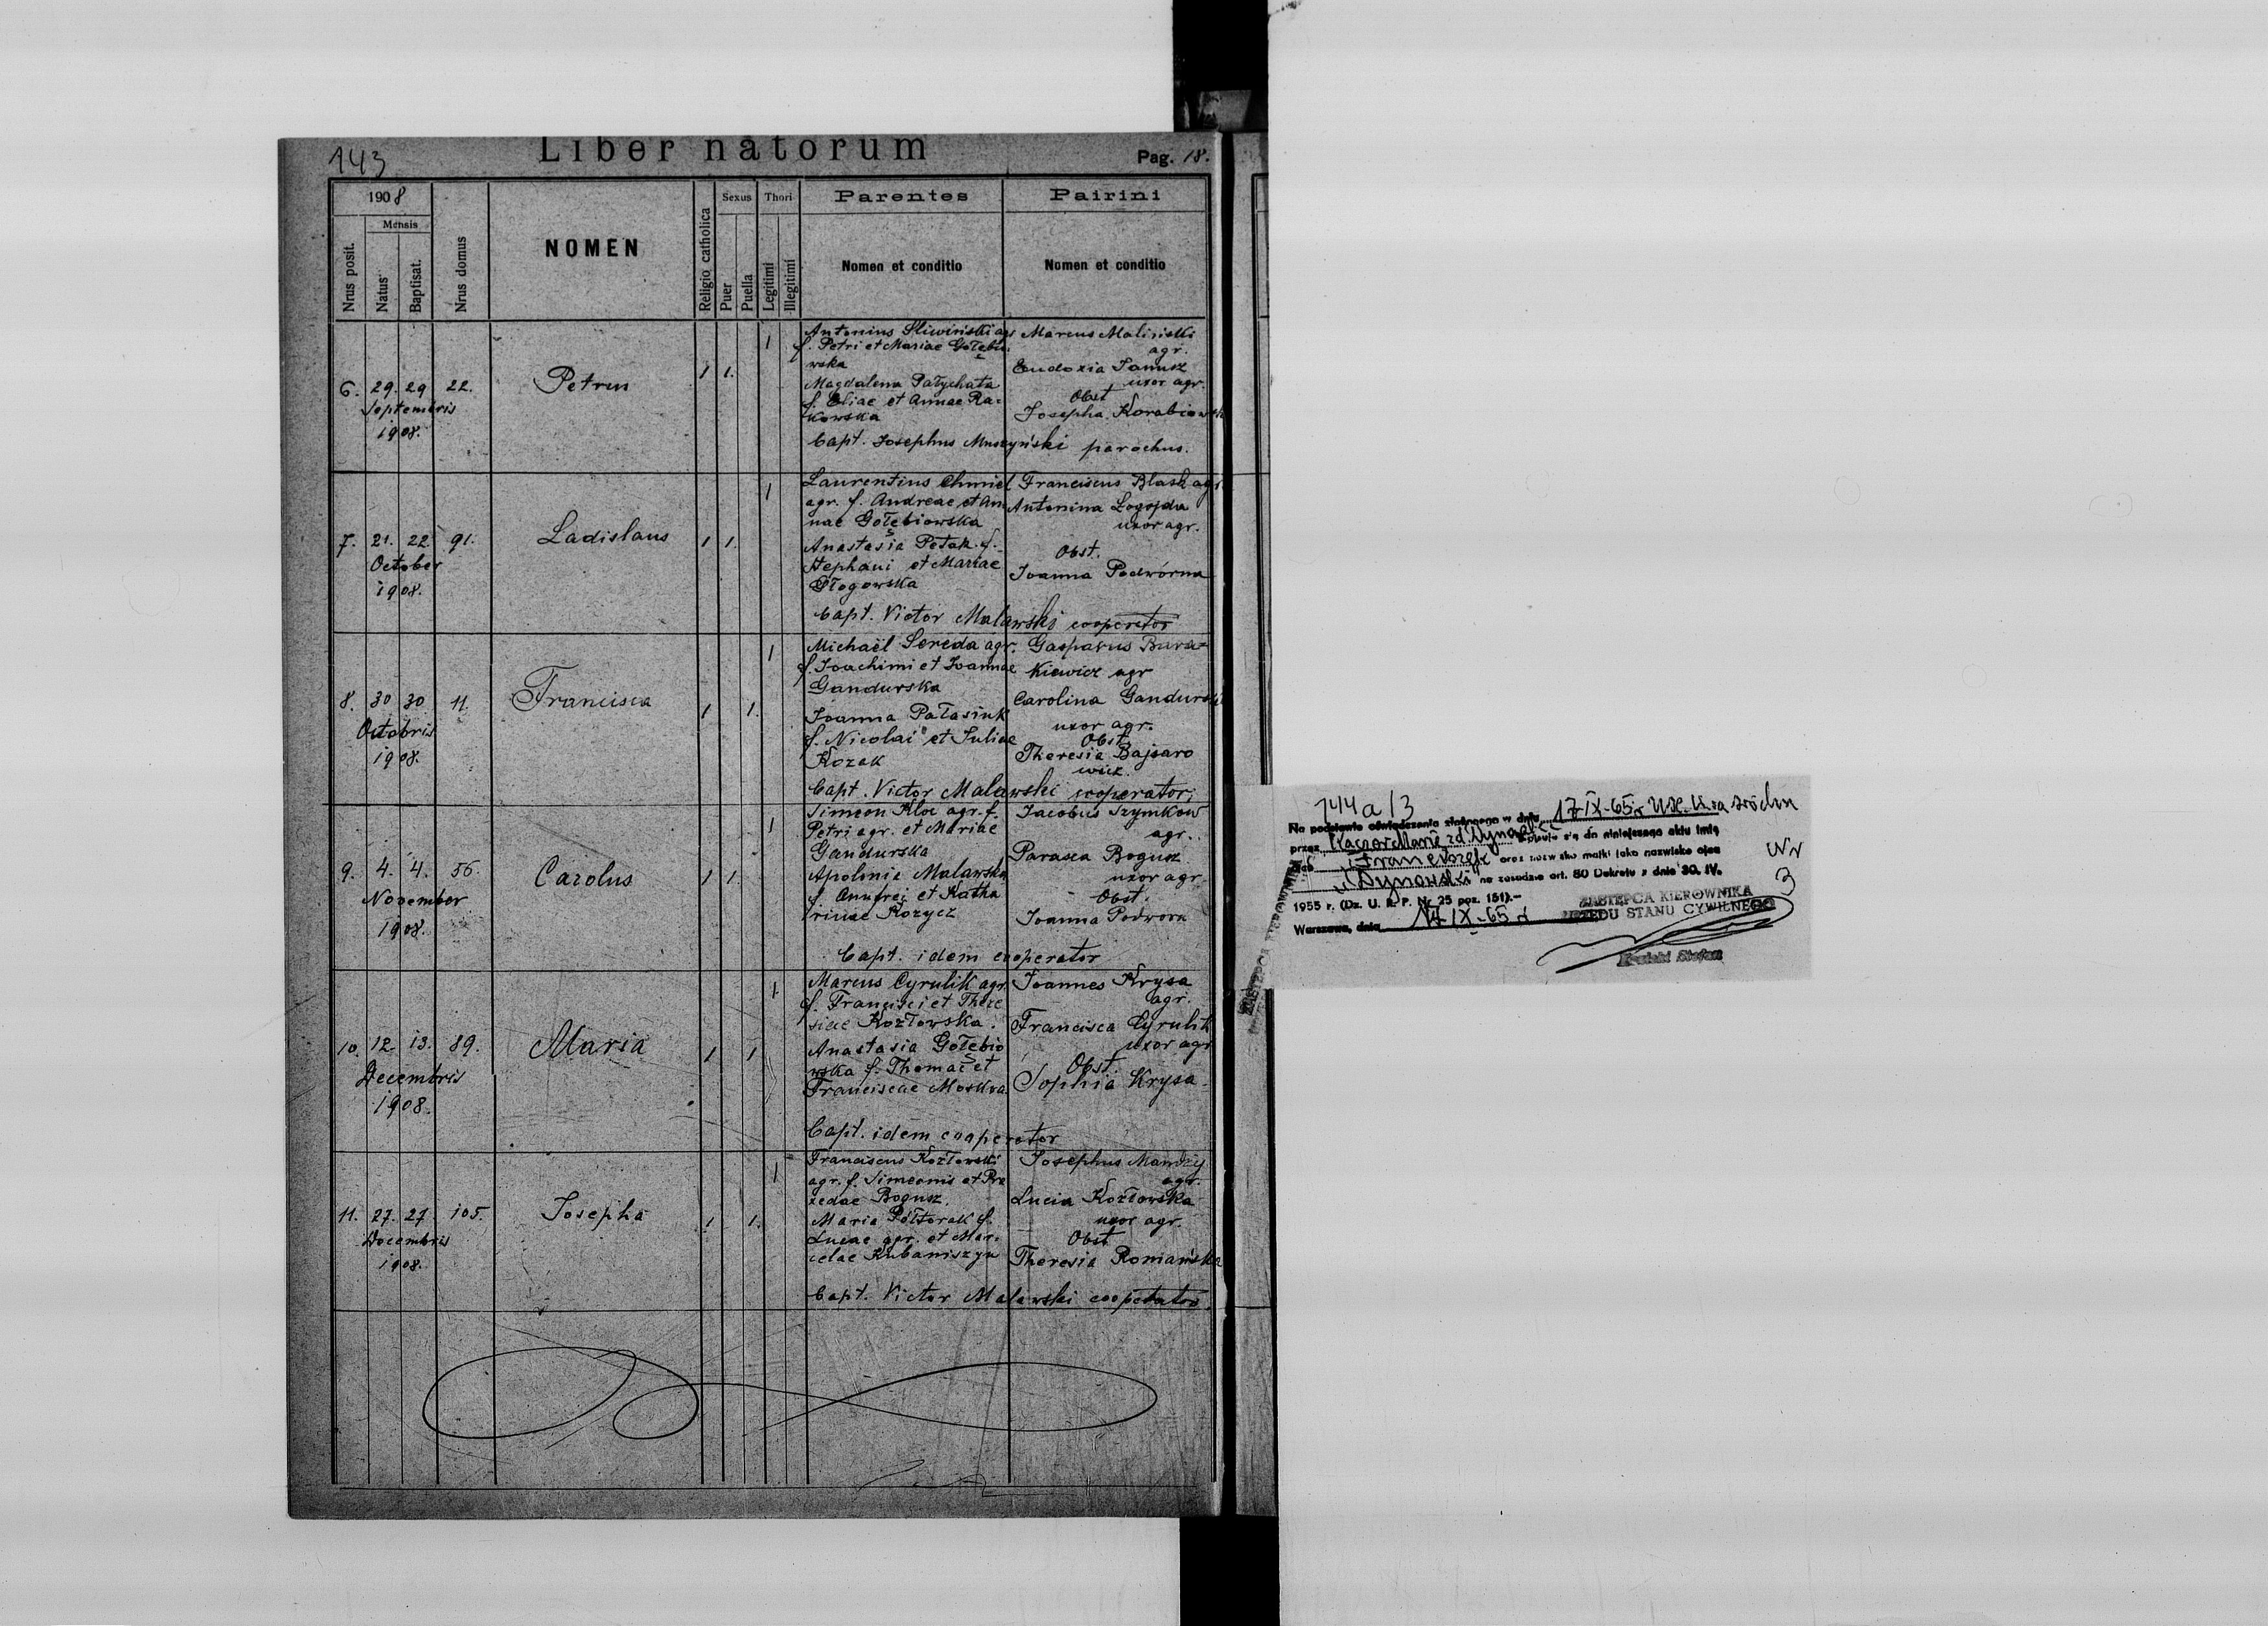 Liber natorum
143
Pag. 18.
1908
Mensis
Nrus posit.
Natus
Baptisat.
Nrus domus
NOMEN
Religio catholica
Sexus
Puer
Puella
Thori
Legitimi
Illegitimi
Parentes
Nomen et conditio
Pairini
Nomen et conditio
6. 29. 29 22.
Septembris
1908.
Petrus
1 1. 1
Antonius Śliwiński agr
f. Petri et Mariae Gołębio
wska
Magdalena Pałychata
f. Eliae et Annae Ra-
kowska
Marcus Maliński
agr.
Eudoxia Janusz
uxor agr.
Obst
Josepha Korabiowsk
Bapt. Josephus Muszyński parochus.
7. 21. 22. 91.
October
1908.
Ladislaus
1 1. 1
Laurentius Chmiel
agr. f. Andreae et An
nae Gołębiowska
Anastasia Petak f.
Stephani et Mariae
Głogowska
Franciscus Blask agr
Antonina Łogojda
uxor agr.
Obst.
Joanna Podwórna
Bapt. Victor Malawski cooperator
8. 30 30 11.
Octobris
1908.
Francisca
1 1. 1
Michaël Sereda agr.
f. Joachimi et Joannae
Gandurska
Joanna Pałasiuk
f. Nicolai et Juliae
Kozak
Gasparus Bura-
kiewicz agr
Carolina Gandurski
uxor agr.
Obst.
Theresia Bajsaro
wicz.
Bapt. Victor Malawski cooperator,
9. 4. 4. 56.
November
1908.
Carolus
1 1. 1
Simeon Kloc agr. f.
Petri agr. et Mariae
Gandurska
Apolonia Malawska
f. Onufrej et Katha
rinae Kozycz
Jacobus Szymków
agr.
Parasca Bogusz
uxor agr.
Obst.
Joanna Podwórn
Bapt. idem cooperator
10. 12. 13. 89.
Decembris
1908.
Maria
1 1 1.
Marcus Cyrulik agr.
f. Francisci et There
siae Kozłowska.
Anastasia Gołębio
wska f. Thomae et
Franciscae Moskwa
Joannes Krysa
agr.
Francisca Cyrulik
uxor agr
Obst.
Sophia Krysa
Bapt. idem cooperator
11. 27. 27. 105.
Decembris
1908.
Josepha
1 1. 1
Franciscus Kozłowski
agr. f. Simeonis et Pra
xedae Bogusz.
Maria Półtorak f.
Lucae agr. et Mar-
celae Kubaniszyn
Josephus Mandzij
agr.
Lucia Kozłowska
uxor agr.
Obst
Theresia Romańska
Bapt. Victor Malawski cooperator
144a/3
Na podstawie oświadczenia złożonego w dniu 17 IX-65 r
przez Kaczor Marię zd Dynow wpisuje się do niniejszego aktu imię
ojca "Franciszek" oraz nazwisko matki jako nazwisko ojca
"Dynowski" na zasadzie art. 80 Dekretu z dnia 30. IV.
1955 r. (Dz. U. R. P. Nr 25 poz. 151).—
Warszawa, dnia 17 IX-65 r
ZASTĘPCA KIEROWNIKA
URZĘDU STANU CYWILNEGO
3